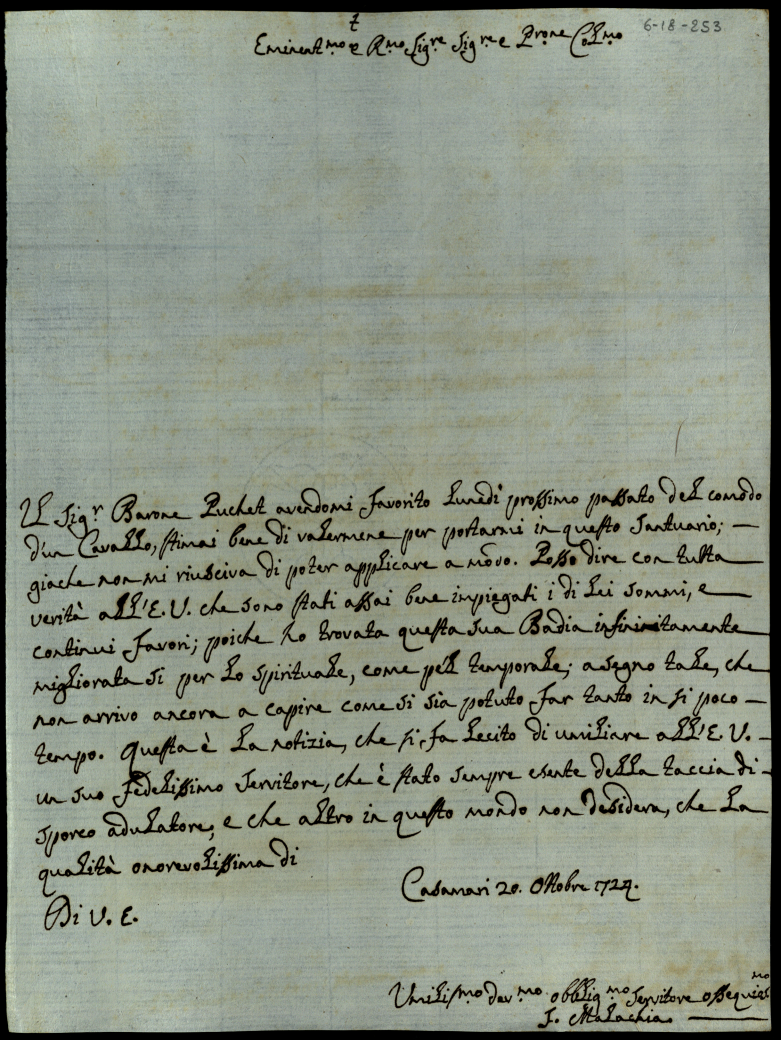 6-18-253
Eminent.mo e R.mo Sig.re Sig.re e P.rone Col.mo
Il Sig.r Barone Puchet avendomi favorito Lunedì prossimo passato del comodo
d'un Cavallo, stimai bene di valermene per portarmi in questo Santuario; —
giache non mi riusciva di poter applicare a modo. Posso dire con tutta
verità all'E. V. che sono stati assai bene impiegati i di Lei sommi, e
continui favori; poiche ho trovata questa sua Badia infinitamente
migliorata si per lo spirituale, come pell temporale; a segno tale, che
non arrivo ancora a capire come si sia potuto far tanto in si poco —
tempo. Questa è la notizia, che si fa lecito di umiliare all'E. V. —
un suo fedelissimo servitore, che è stato sempre esente della taccia di —
sporco adulatore, e che altro in questo mondo non desidera, che la
qualità onorevolissima di
Casamari 20. Ottobre 1724.
Di V. E.
Umiliss.mo dev.mo obblig.mo Servitore ossequios.mo
F. Malachia